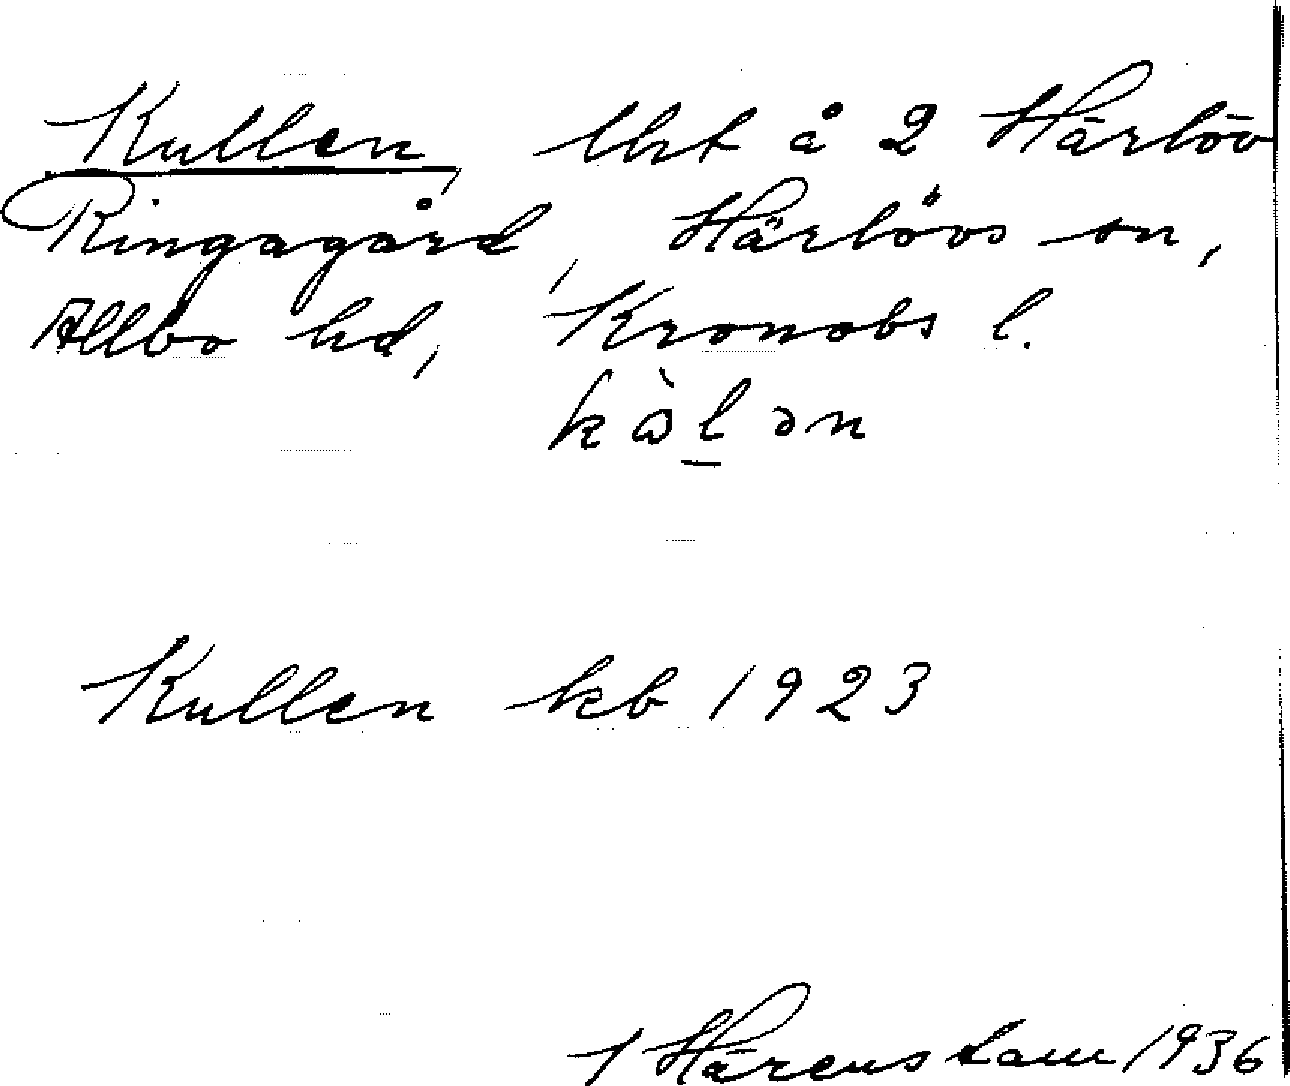 Kullen, lht å 2 Härlöv
Ringagård, Härlövs sn,
Allbo hd, Kronobs l.
Kullen kb 1923
Härenstam 1936